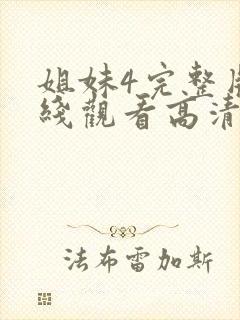 姐妹4完整
綫觀看高清
法布雷加斯